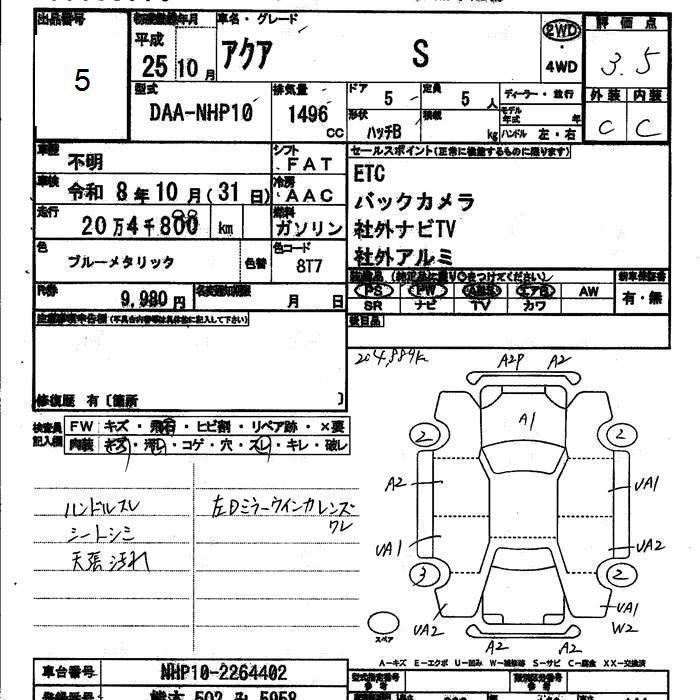 出品番号
5
初度登録年月
平成
25 10 月
車名・グレード
アクア S
2WD
・
4WD
評価点
3.5
外装 内装
C C
型式
DAA-NHP10
排気量
1496 CC
ドア
5
定員
5 人
形状
ハッチB
積載
kg
ディーラー・並行
モデル年式 年
ハンドル 左・右
車歴
不明
シフト
FAT
車検
令和 8 年 10 月 ( 31 日)
冷房
AAC
走行
20 万 4 千 800 km
88
燃料
ガソリン
色
ブルーメタリック
色替
色コード
8T7
R券
9,980 円
名変期限
月 日
セールスポイント(正常に機能するものに限ります)
ETC
バックカメラ
社外ナビTV
社外アルミ
装備品 (純正品に限り○をつけてください)
PS PW ABS エアB AW
SR ナビ TV カワ
新車保証書
有・無
後日品
注意事項申告欄 (不具合内容等は具体的に記入して下さい)
修復歴 有〔箇所 〕
検査員記入欄
FW キズ・飛石・ヒビ割・リペア跡・×要
内装 キズ・汚レ・コゲ・穴・スレ・キレ・破レ
ハンドルスレ
シートシミ
天張汚れ
左Dミラーウインカレンズ
ワレ
204,889k
A2P A2
A1
2 2
A2 UA1
UA1 UA2
3 2
UA2 UA1
W2
A2 A2
スペア
A-キズ E-エクボ U-凹み W-補修跡 S-サビ C-腐食 XX-交換済
車台番号
NHP10-2264402
登録番号
熊本 502
5958
型式指定番号
類別区分番号
参考
参考